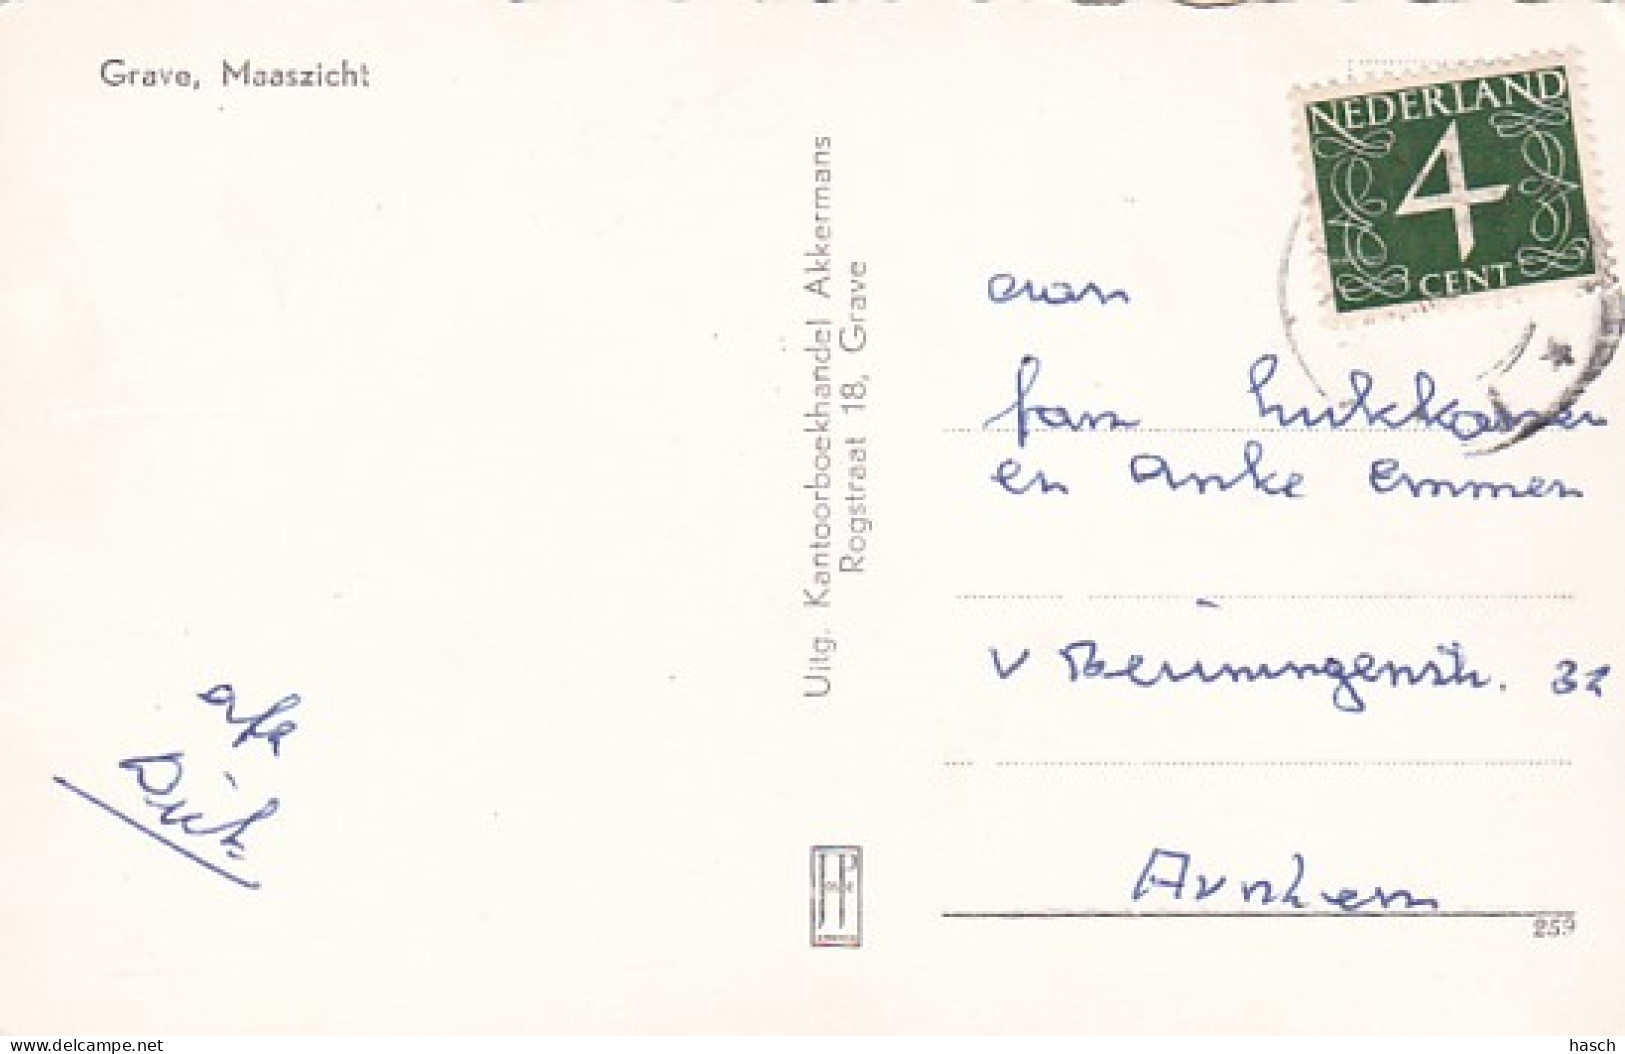 Grave, Maaszicht
NEDERLAND
4
CENT
Uitg. Kantoorboekhandel Akkermans
Rogstraat 18, Grave
aan
fam
en Anke Emmen
v Beuningenstr. 32
Arnhem
afz
Dick
JP
259
delcampe.net
hasch